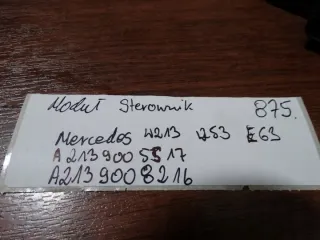 Moduł Sterownik 875.
Mercedes W213 V53 E63
A 213 900 55 17
A213 900 82 16